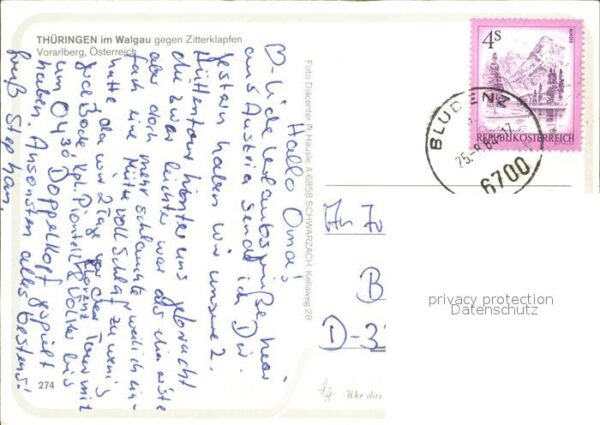 THÜRINGEN im Walgau gegen Zitterklapfen
Vorarlberg, Österreich
Hallo Oma!
Liebe Urlaubsgrüße hier
aus Austria sendet ich Dir.
Gestern haben wir unsere 2.
Hüttentour hinter uns gebracht
die zwar leichter war als die erste
aber doch mehr schlauchte, weil ich ein-
fach eine Mütze voll Schlaf zu wenig
hatte, da wir 2 Tage vor der Tour mit
um 0430 Doppelkopf gespielt
haben. Ansonsten alles bestens!
Gruß Stephan.
274
Foto Diacenter A-6858 SCHWARZACH, Kellaweg 2B
4S
REPUBLIK ÖSTERREICH
BLUDENZ
6700
An
B
D-3
privacy protection
Datenschutz
Wer das